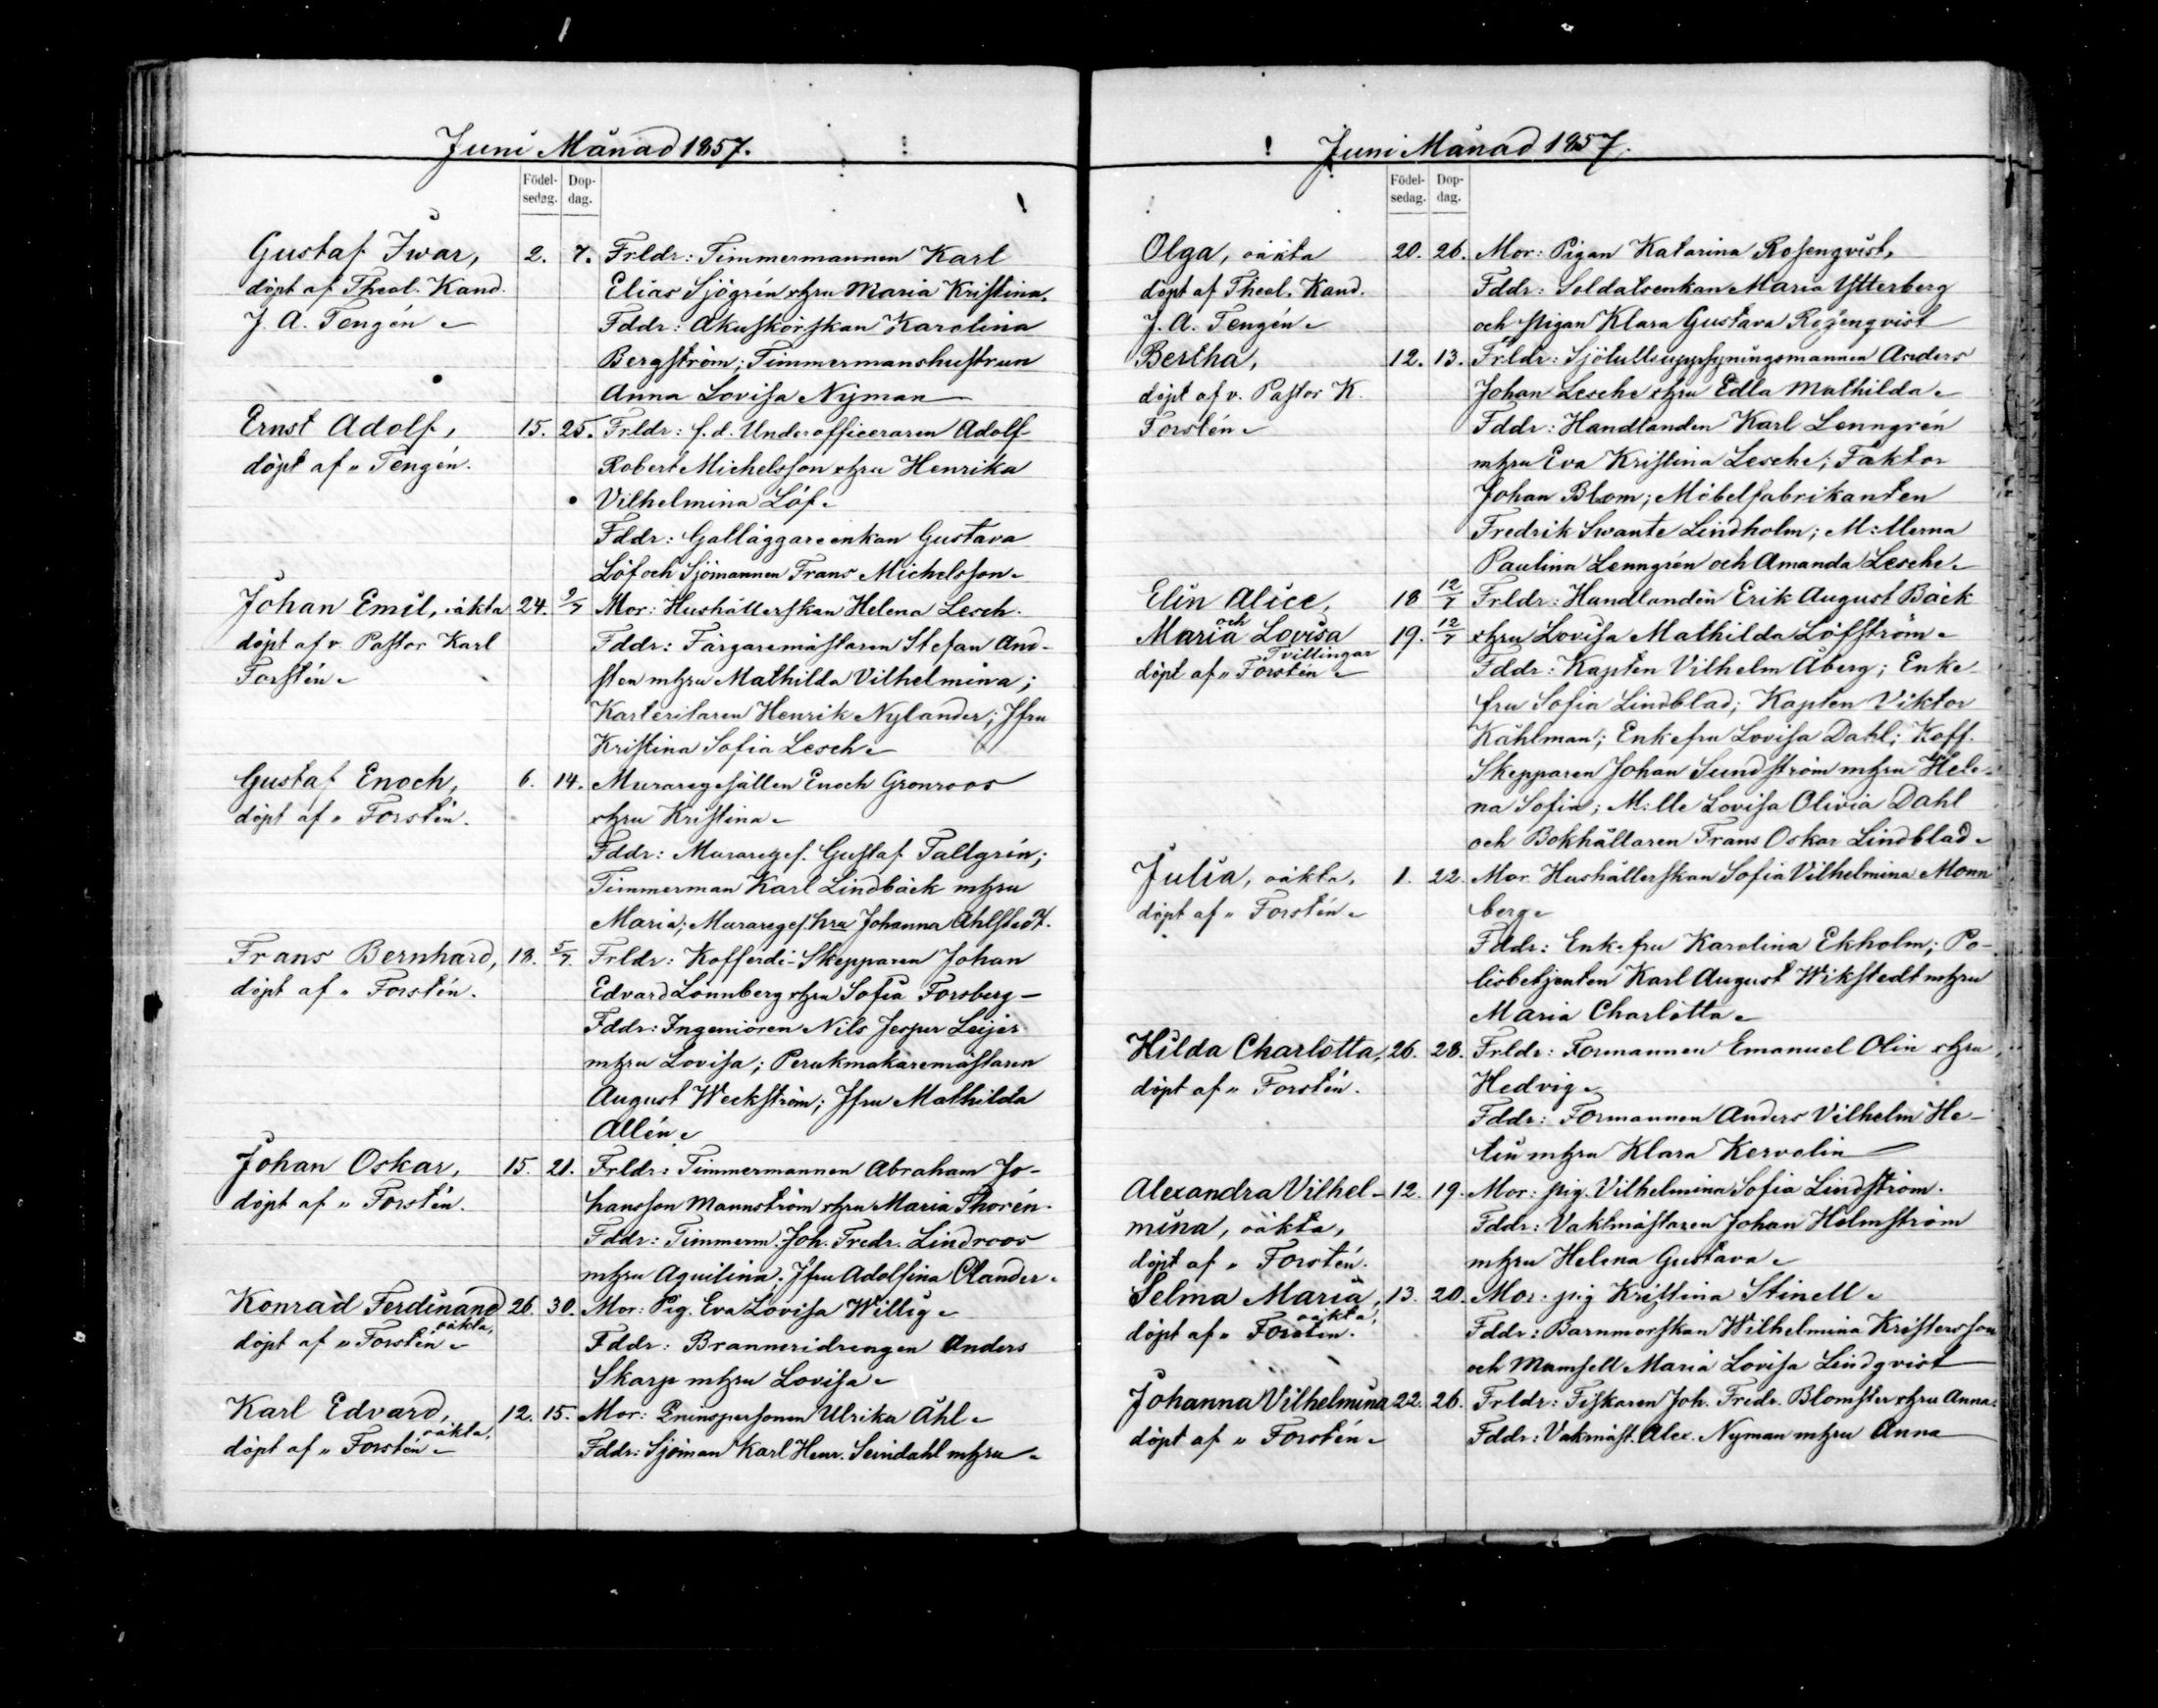 Juni Månad 1857.
Födel-sedag. Dop-dag.
Gustaf Iwar, 2. 7. Frldr: Timmermannen Karl
döpt af Theol. Kand. Elias Sjögrén o hru Maria Kristina.
J. A. Tengén Fddr: Akuskörskan Karolina
Bergström; Timmermanshustrun
Anna Lovisa Nyman
Ernst Adolf, 15. 25. Frldr: f.d. Underofficeraren Adolf
döpt af " Tengén. Robert Michelsson o hru Henrika
Vilhelmina Löf
Fddr: Galläggareenkan Gustava
Löf och Sjömannen Frans Michelsson
Johan Emil, oäkta 24. 2/7 Mor: Hushållerskan Helena Lesch.
döpt af v. Pastor Karl Fddr: Färgaremästaren Stefan And-
Forstén sten m hru Mathilda Vilhelmina;
Henrik Nylander; Jfru
Kristina Sofia Lesch
Gustaf Enoch, 6. 14. Muraregesällen Enoch Grönroos
döpt af " Forstén. o hru Kristina
Fddr: Murareges. Gustaf Tallgrén;
Timmerman Karl Lindbäck m hru
Maria; Murareges. hru Johanna Ahlstedt.
Frans Bernhard, 18. 5/7. Frldr: Kofferdi-Skepparen Johan
döpt af " Forstén. Edvard Lönnberg o hru Sofia Forsberg
Fddr: Ingeniören Nils Jesper Leijer
m hru Lovisa; Perukmakaremästaren
August Weckström; Jfru Mathilda
Allén
Johan Oskar, 15. 21. Frldr: Timmermannen Abraham Jo-
döpt af " Forstén. hansson Mannström o hru Maria Thorén.
Fddr: Timmerm. Joh. Fredr. Lindroos
m hru Aquilina; Jfru Adolfina Clander
Konrad Ferdinand 26. 30. Mor: Pig. Eva Lovisa Willig
oäkta,
döpt af " Forstén Fddr: Bränneridrengen Anders
Skarp m hru Lovisa
Karl Edvard, 12. 15. Mor: Qvinspersonen Ulrika Ahl
oäkta,
döpt af " Forstén Fddr: Sjöman Karl Henr. Seindahl m hru
Juni Månad 1857.
Födel-sedag. Dop-dag.
Olga, oäkta 20. 26. Mor: Pigan Katarina Rosenqvist,
döpt af Theol. Kand. Fddr: Soldatenkan Maria Ytterberg
J. A. Tengén och pigan Klara Gustava Rosenqvist
Bertha, 12. 13. Frldr: Sjötulluppsyningsmannen Anders
döpt af v. Pastor K. Johan Lesche o hru Edla Mathilda
Forstén Fddr: Handlanden Karl Lenngrén
m hru Eva Kristina Lesche; Faktor
Johan Blom; Möbelfabrikanten
Fredrik Swante Lindholm; M:llerna
Paulina Lenngrén och Amanda Lesche
Elin Alice, 18 12/7 Frldr: Handlanden Erik August Bäck
och
Maria Lovisa 19. 12/7 o hru Lovisa Mathilda Löfström
Tvillingar
döpt af " Forstén Fddr: Kapten Vilhelm Åberg; Enke-
fru Sofia Lindblad; Kapten Viktor
Kåhlman; Enkefru Lovisa Dahl; Koff.
Skepparen Johan Sundström m hru Hele-
na Sofia; M:lle Lovisa Olivia Dahl
och Bokhållaren Frans Oskar Lindblad
Julia, oäkta, 1. 22. Mor. Hushållerskan Sofia Vilhelmina Monn
döpt af " Forstén berg
Fddr: Enkefru Karolina Ekholm; Po-
lisbetjenten Karl August Wikstedt m hru
Maria Charlotta
Hilda Charlotta, 26. 28. Frldr: Formannen Emanuel Olin o hru
döpt af " Forstén. Hedvig
Fddr: Formannen Anders Vilhelm He-
lin m hru Klara Kervolin
Alexandra Vilhel- 12. 19. Mor: pig. Vilhelmina Sofia Lindström.
mina, oäkta, Fddr: Vaktmästaren Johan Holmström
döpt af " Forstén. m hru Helena Gustava
Selma Maria, 13. 20. Mor. pig Kristina Stinell
oäkta,
döpt af " Forstén. Fddr: Barnmorskan Wilhelmina Kristersson
och Mamsell Maria Lovisa Lindqvist
Johanna Vilhelmina 22. 26. Frldr: Fiskaren Joh. Fredr. Blomster o hru Anna
döpt af " Forstén Fddr: Vakmäst. Alex. Nyman m hru Anna